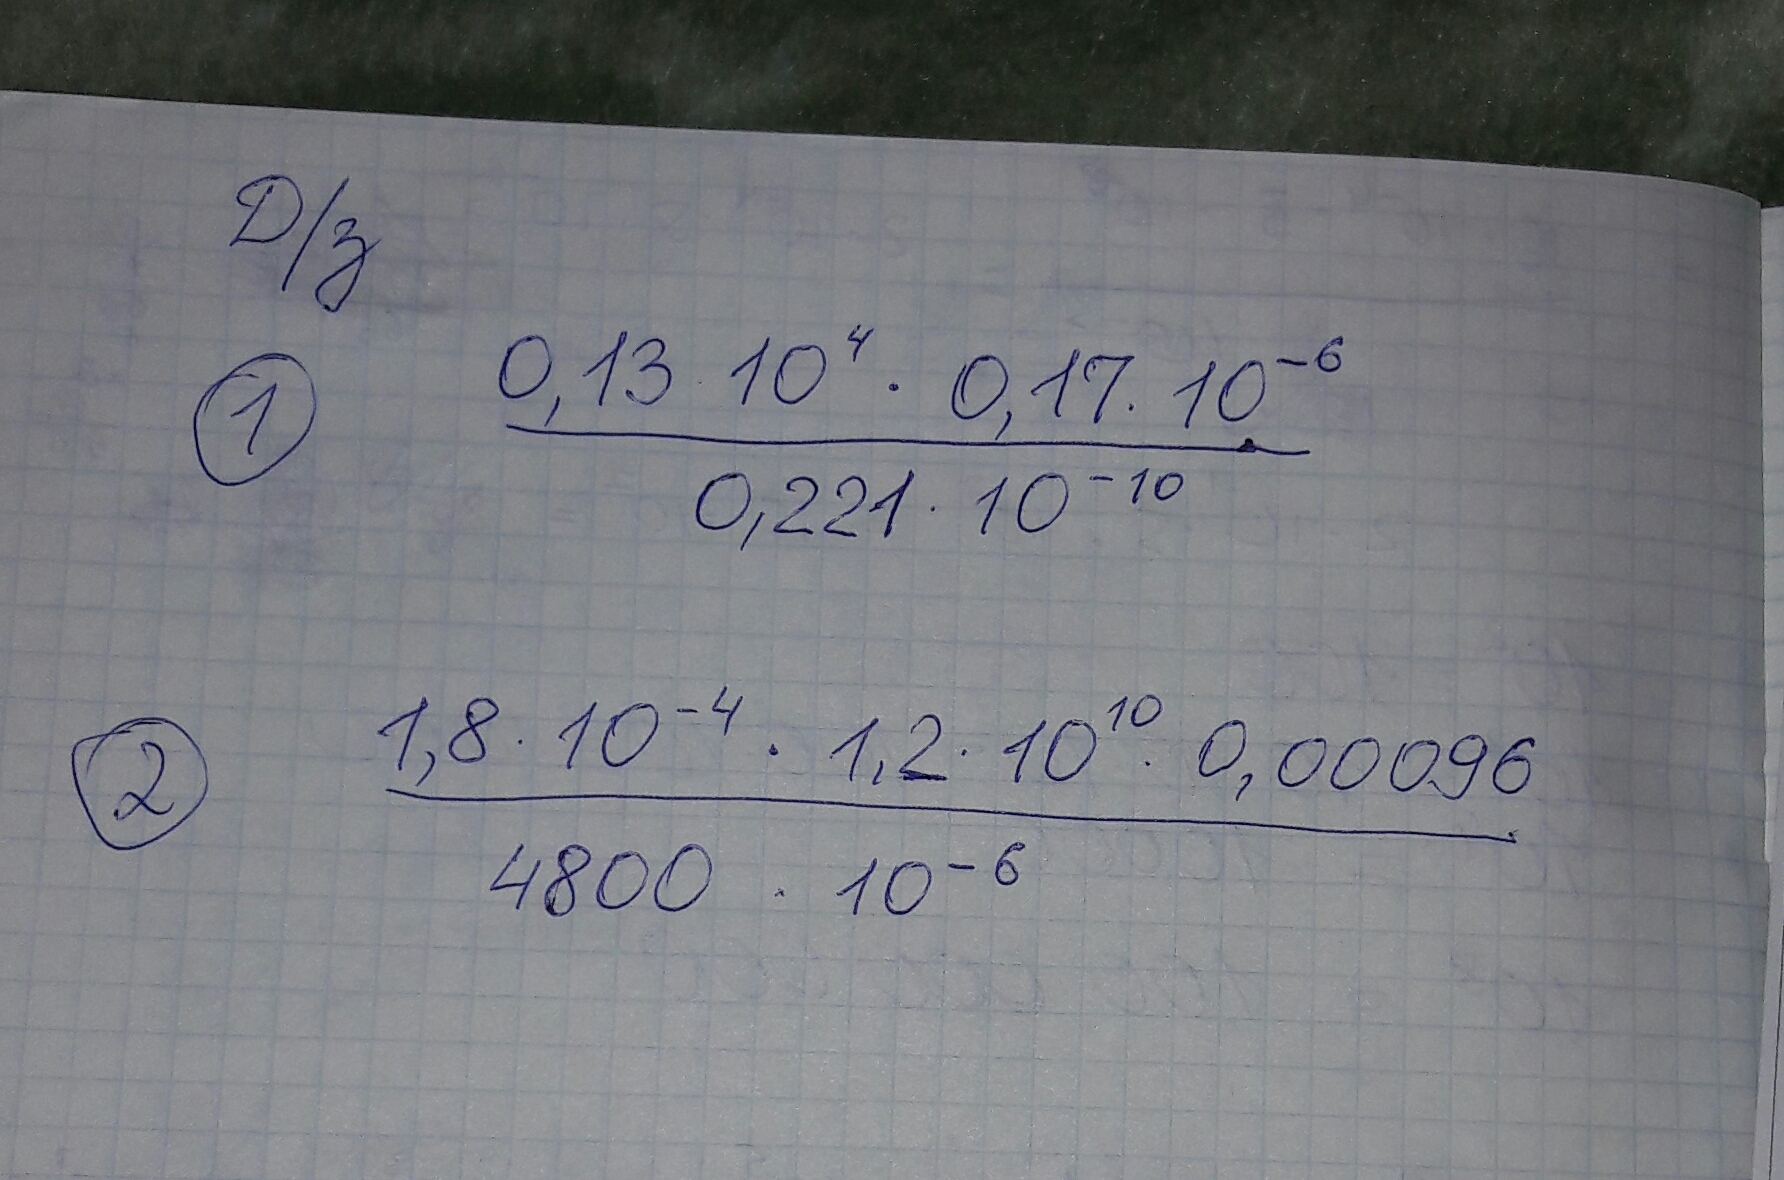 Д/з
1 0,13 · 10⁴ · 0,17 · 10⁻⁶
0,221 · 10⁻¹⁰
2 1,8 · 10⁻⁴ · 1,2 · 10¹⁰ · 0,00096
4800 · 10⁻⁶